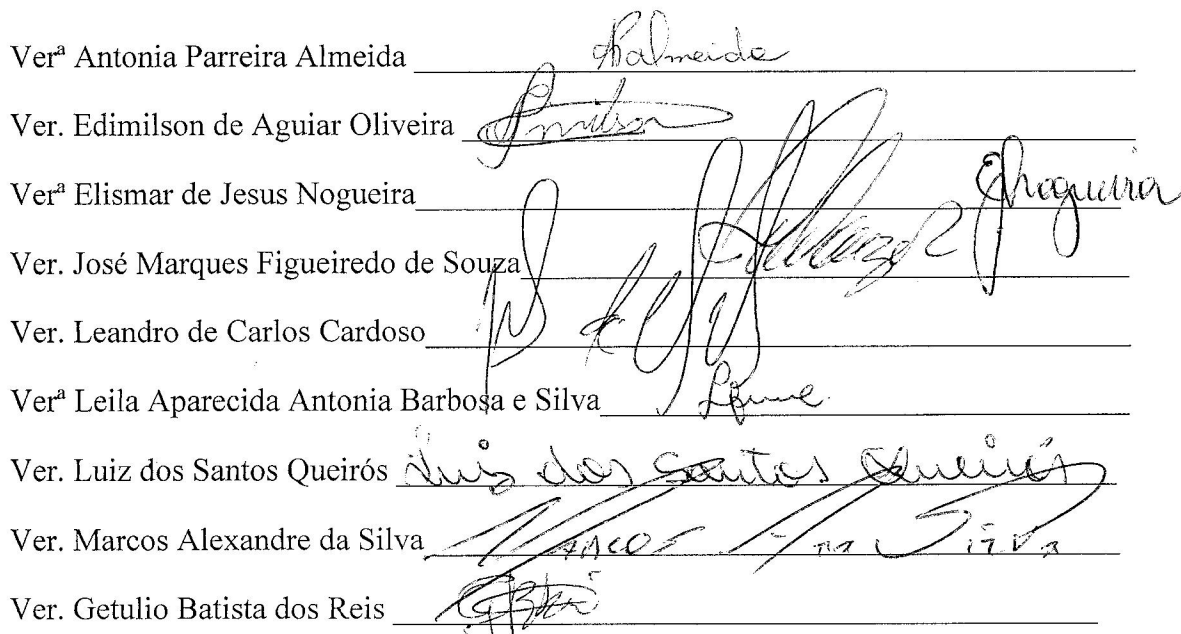 Verª Antonia Parreira Almeida APalmeida
Ver. Edimilson de Aguiar Oliveira Edmilson
Verª Elismar de Jesus Nogueira EJnogueira
Ver. José Marques Figueiredo de Souza
Ver. Leandro de Carlos Cardoso
Verª Leila Aparecida Antonia Barbosa e Silva
Ver. Luiz dos Santos Queirós Luiz dos Santos Queirós
Ver. Marcos Alexandre da Silva Marcos da Silva
Ver. Getulio Batista dos Reis